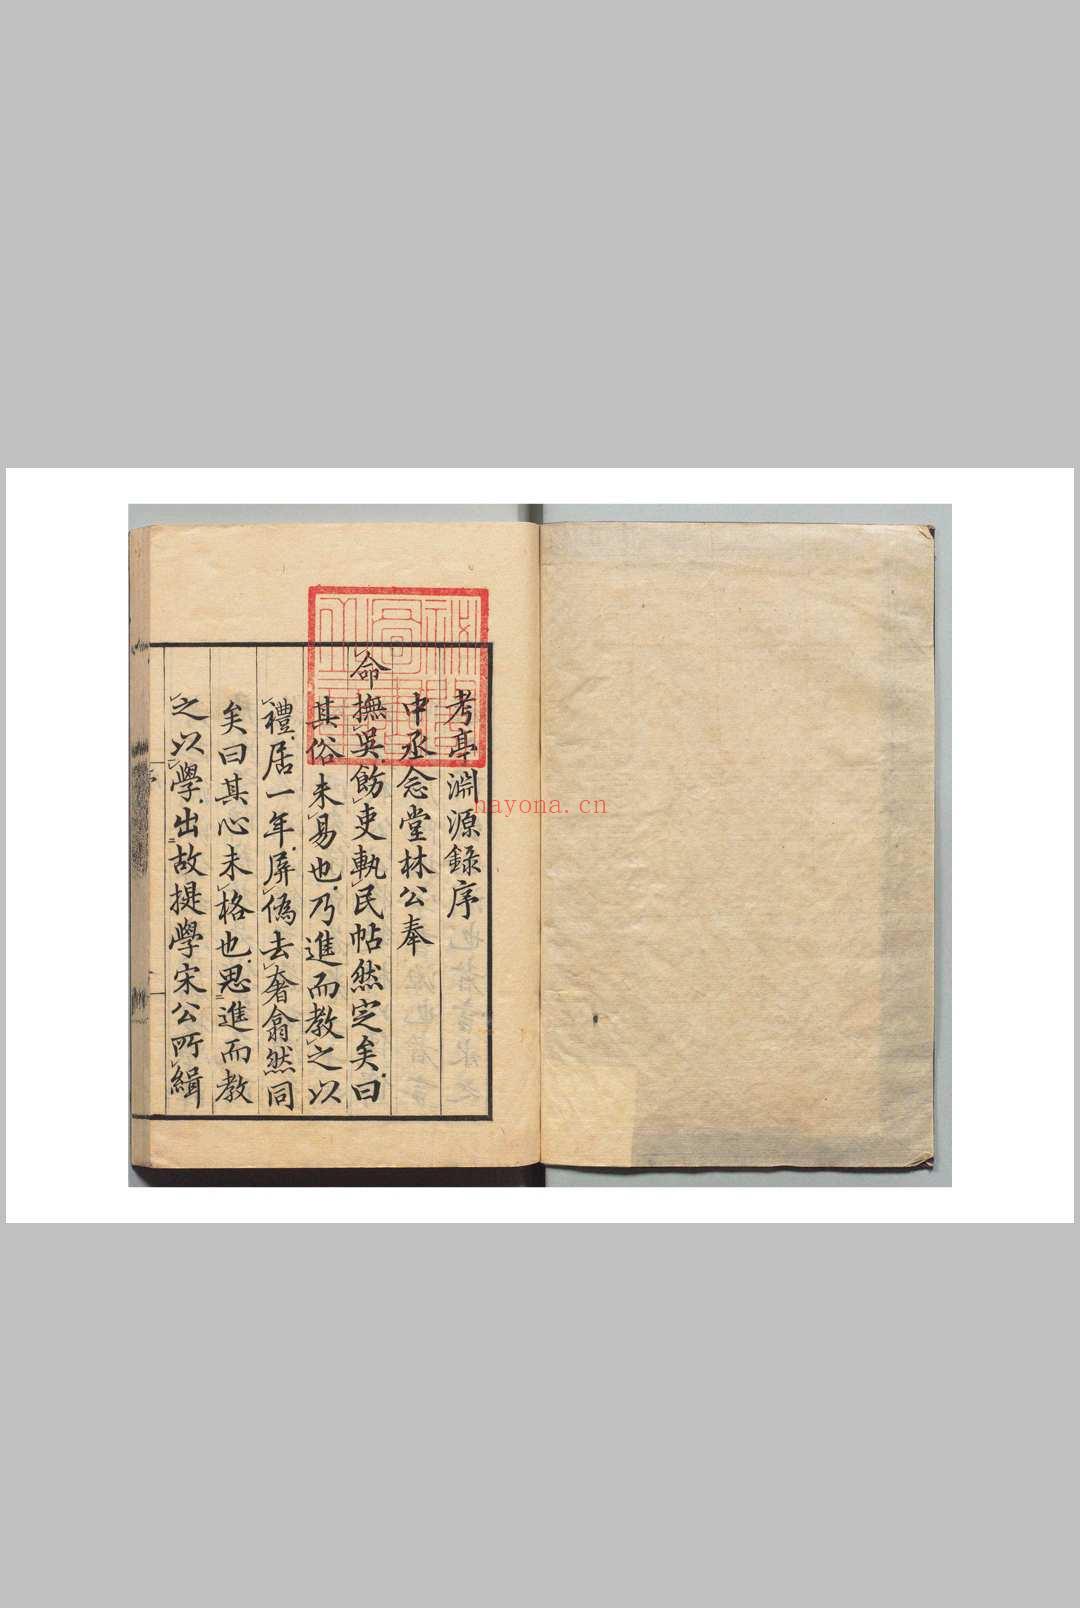 考亭淵源錄序
中丞念堂林公奉
命撫吳飭吏執民帖然定矣曰
其俗未易也乃進而教之以
禮居一年屏偽去奢翕然同
矣曰其心未格也思進而教
之以學出故提學宋公所緝
nayona.cn